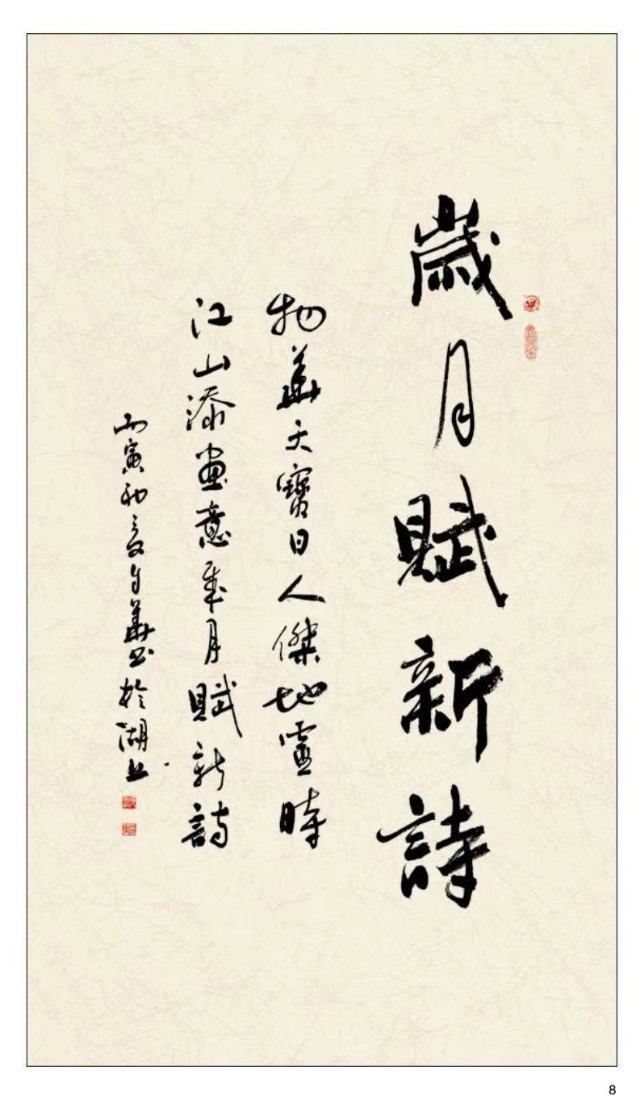 歲月賦新詩
物華天寶日人傑地靈時
江山添畫意歲月賦新詩
丙寅初夏華書於湖
8